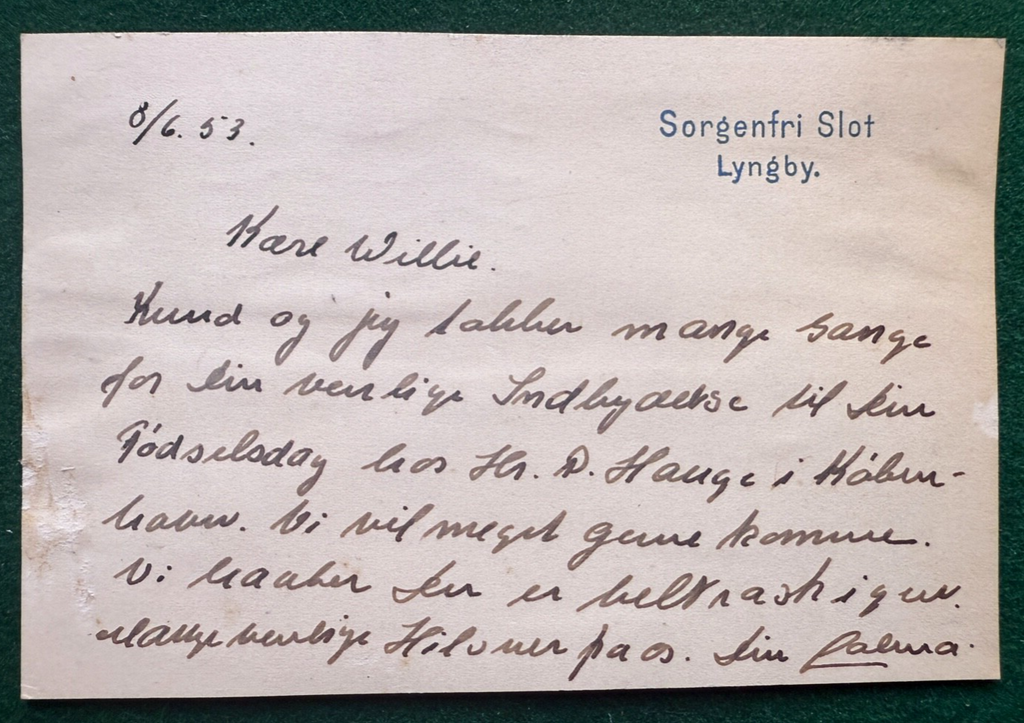 8/6. 53.
Sorgenfri Slot
Lyngby.
Kære Willie.
Knud og jeg takker mange Gange
for Din venlige Indbydelse til Din
Fødselsdag hos Hr. D. Hauge i Køben-
havn. Vi vil meget gerne komme.
Vi haaber Du er helt rask igen.
Mange venlige Hilsner fra os. Din